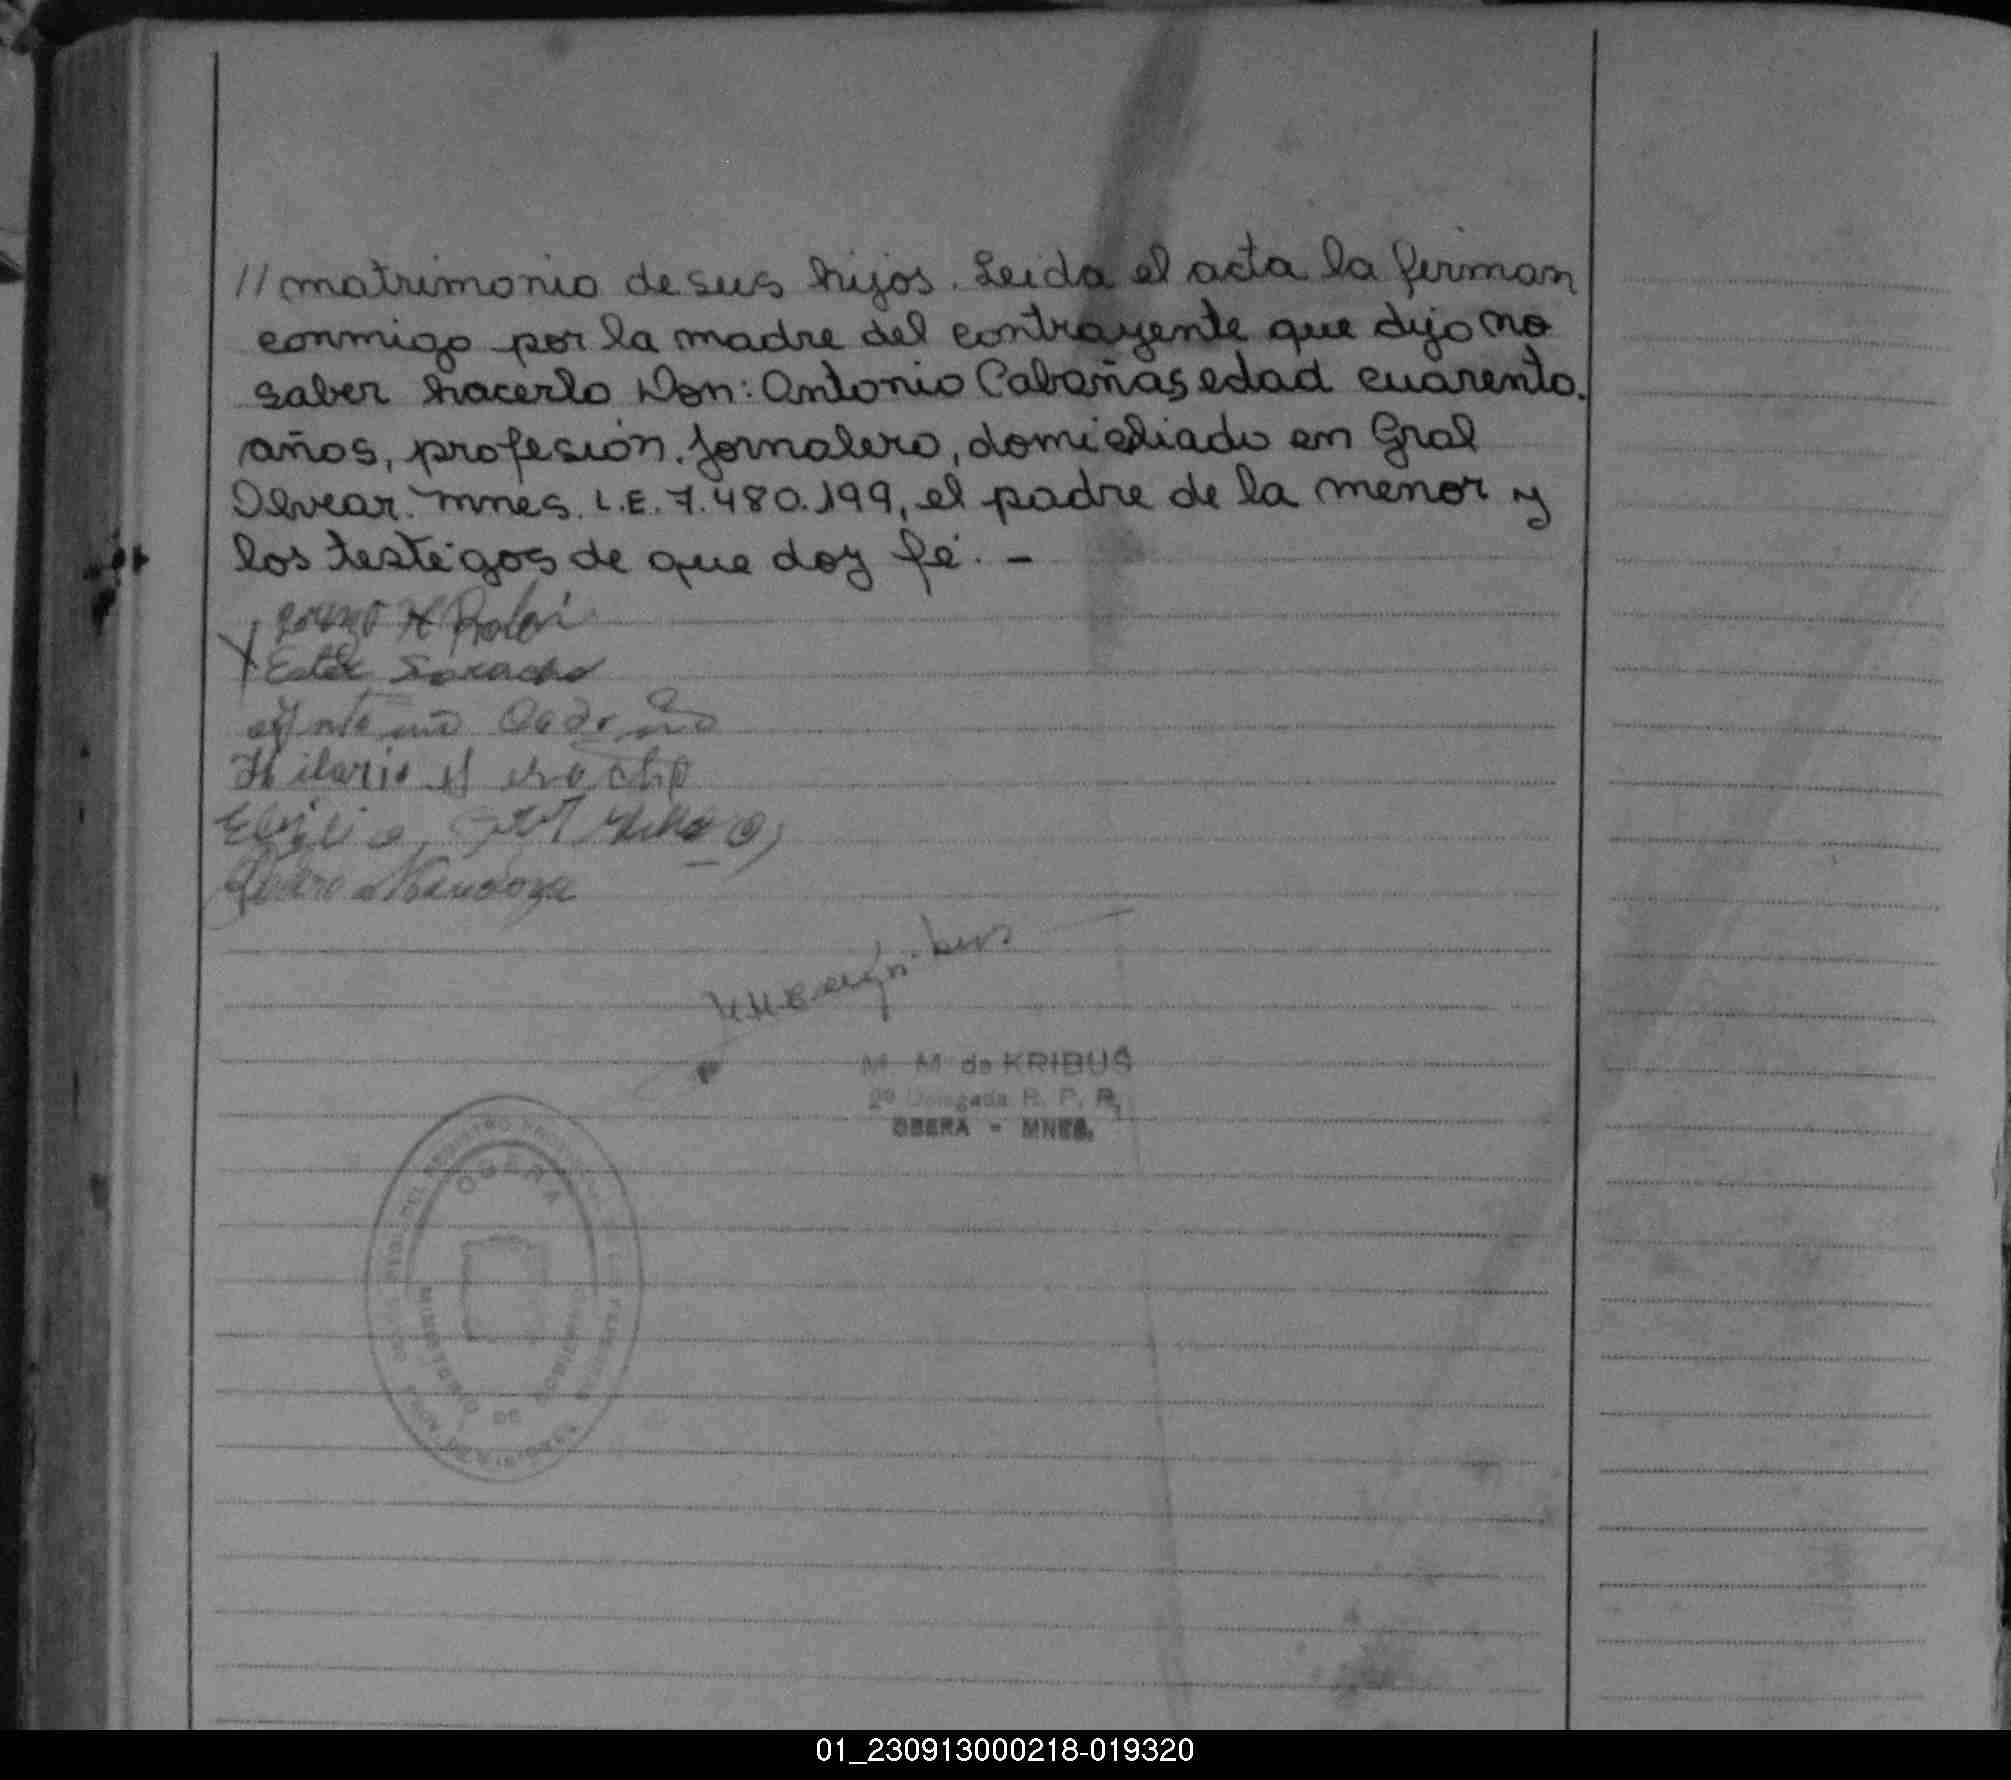 // matrimonio de sus hijos. Leida el acta la firman
conmigo por la madre del contrayente que dijo no
saber hacerlo Don: Antonio Cabañas edad cuarenta.
años, profesión. Jornalero, domiciliado en Gral
Alvear. Mnes. L.E. 7.480.199, el padre de la menor y
los testigos de que doy fé. -
Ester Saracho
Hilario
Pedro Mendoza
M M de KRIBUS
2º Delegada R. P. P.
OBERÁ - MNES.
OBERA
MINISTERIO DE GOBIERNO
01_230913000218-019320